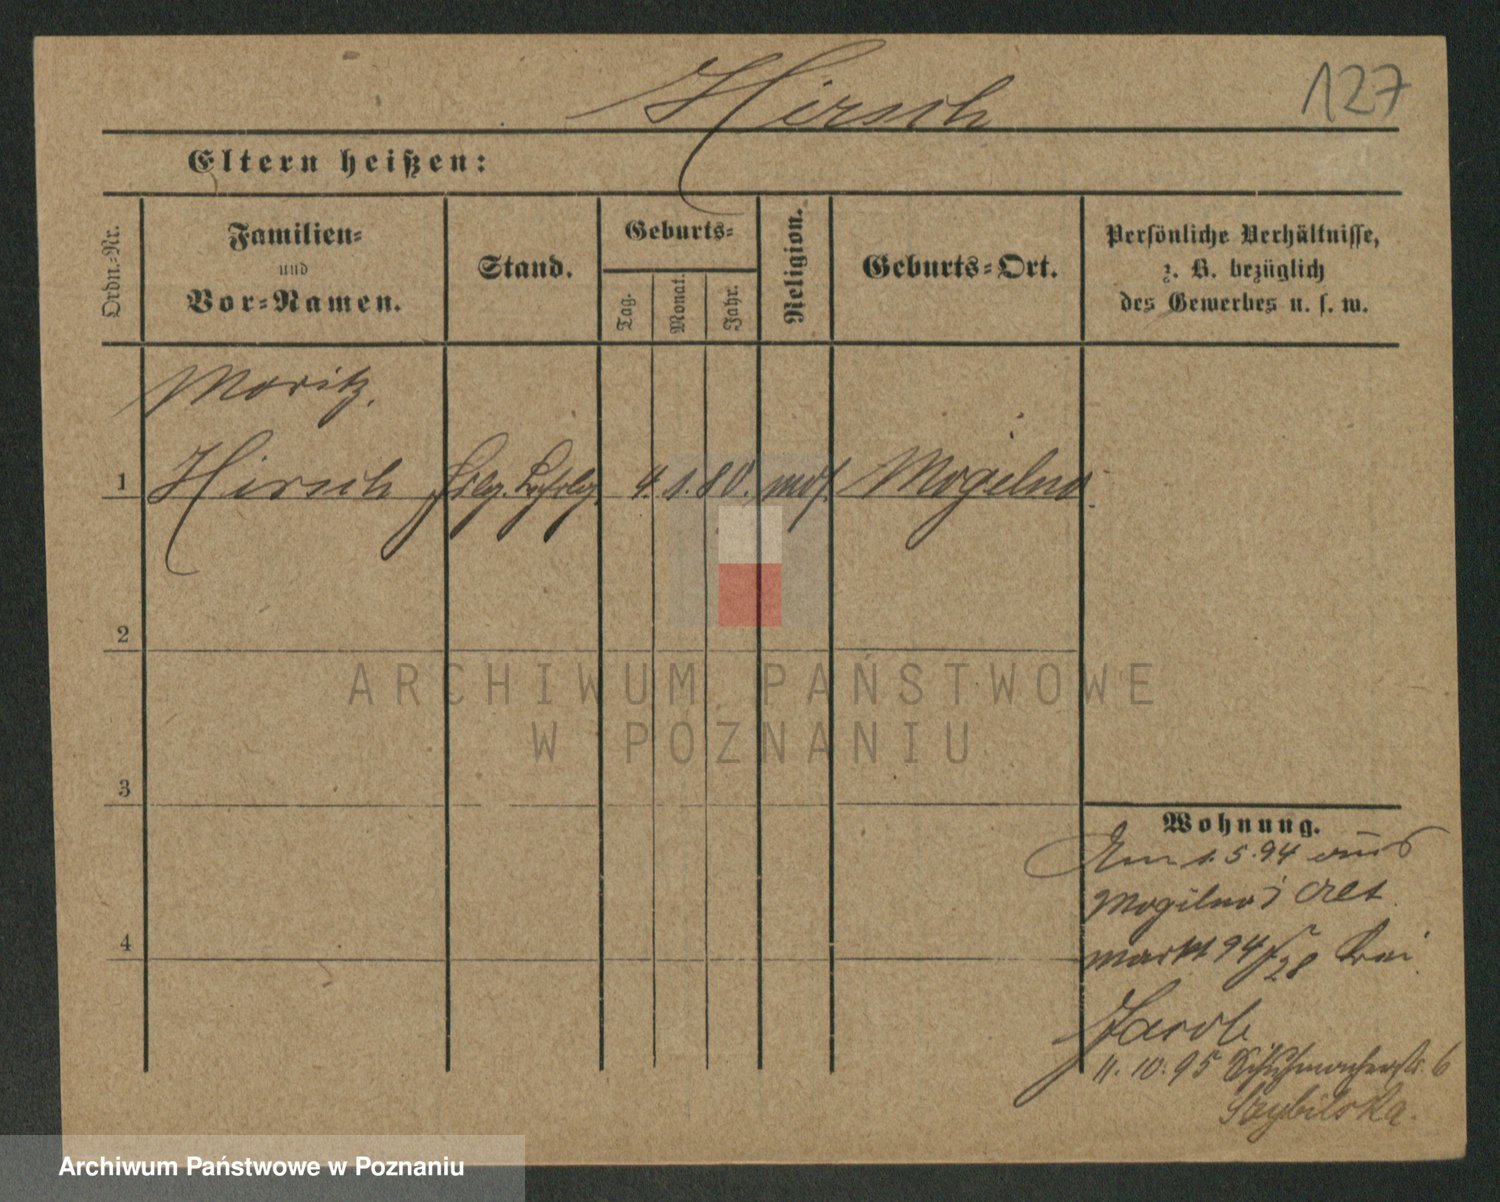 Hirsch
127
Eltern heißen:
Ordn.-Nr.
Familien-
und
Vor-Namen.
Stand.
Geburts-
Tag.
Monat.
Jahr.
Religion.
Geburts-Ort.
Persönliche Verhältnisse,
z. B. bezüglich
des Gewerbes u. s. w.
Moritz.
1 Hirsch 4. 1. 80. mos. Mogilno.
2
ARCHIWUM PAŃSTWOWE
W POZNANIU
3
Wohnung.
Am 1.5.94 aus
Mogilno Alt
markt 94/ bei
Jacob
4
11.10.95 Schuhmacherstr. 6
Archiwum Państwowe w Poznaniu